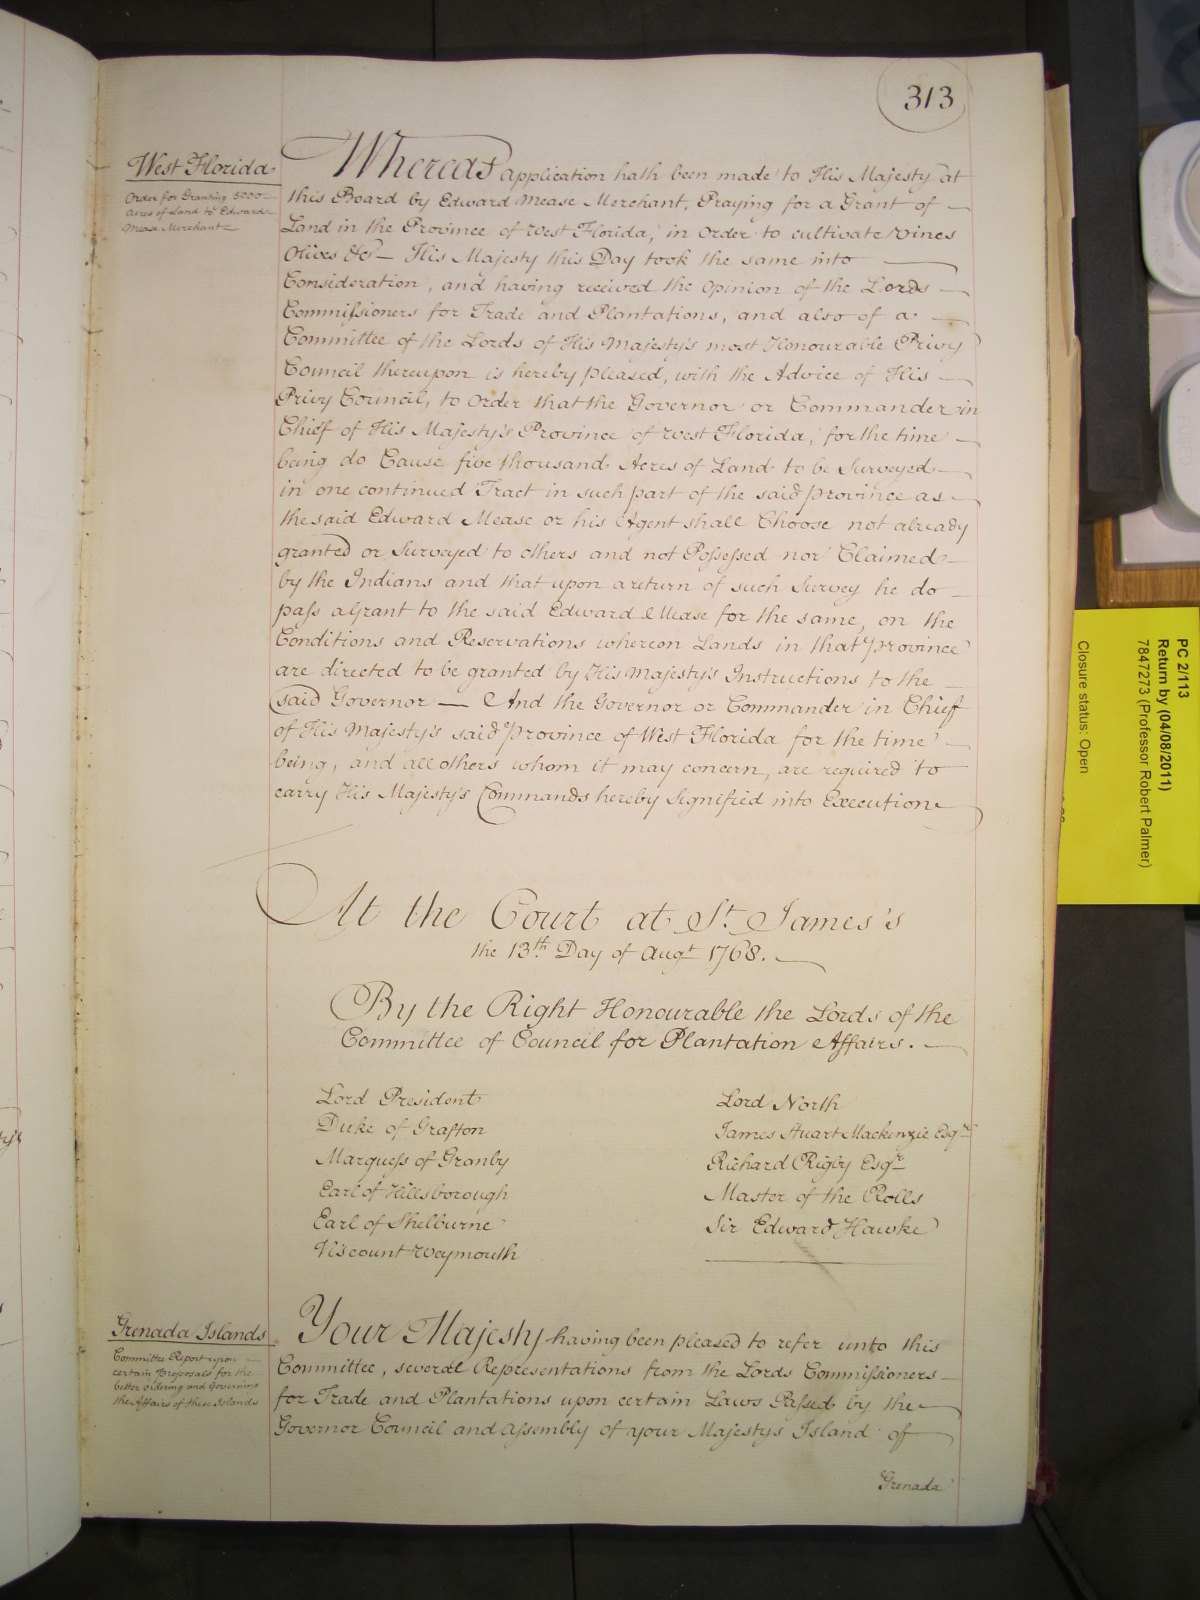 313
West Florida
Order for Granting 5000
Acres of Land to Edward
Mease Merchant
Whereas application hath been made to His Majesty at
this Board by Edward Mease Merchant, Praying for a Grant of
Land in the Province of West Florida, in Order to cultivate Vines
Olives &c. His Majesty this Day took the same into
Consideration, and having received the Opinion of the Lords
Commissioners for Trade and Plantations, and also of a
Committee of the Lords of His Majesty's most Honourable Privy
Council thereupon is hereby pleased, with the Advice of His
Privy Council, to Order that the Governor or Commander in
Chief of His Majesty's Province of West Florida, for the time
being do Cause five thousand Acres of Land to be Surveyed
in one continued Tract in such part of the said Province as
the said Edward Mease or his Agent shall Choose not already
granted or Surveyed to others and not Possessed nor Claimed
by the Indians and that upon a return of such Survey he do
pass a Grant to the said Edward Mease for the same, on the
Conditions and Reservations whereon Lands in that Province
are directed to be granted by His Majesty's Instructions to the
said Governor — And the Governor or Commander in Chief
of His Majesty's said Province of West Florida for the time
being, and all others whom it may concern, are required to
carry His Majesty's Commands hereby Signified into Execution
At the Court at St. James's
the 13th Day of Augt 1768.
By the Right Honourable the Lords of the
Committee of Council for Plantation Affairs.
Lord President
Duke of Grafton
Marquess of Granby
Earl of Hillsborough
Earl of Shelburne
Viscount Weymouth
Lord North
James Stuart Mackenzie Esqr
Richard Rigby Esqr
Master of the Rolls
Sir Edward Hawke
Grenada Islands
Committee Report upon
certain Proposals for the
better ordering and Governing
the Affairs of these Islands
Your Majesty having been pleased to refer unto this
Committee, several Representations from the Lords Commissioners
for Trade and Plantations upon certain Laws Passed by the
Governor Council and Assembly of your Majesty's Island of
Grenada
PC 2/113
Return by (04/08/2011)
7847273 (Professor Robert Palmer)
Closure status: Open